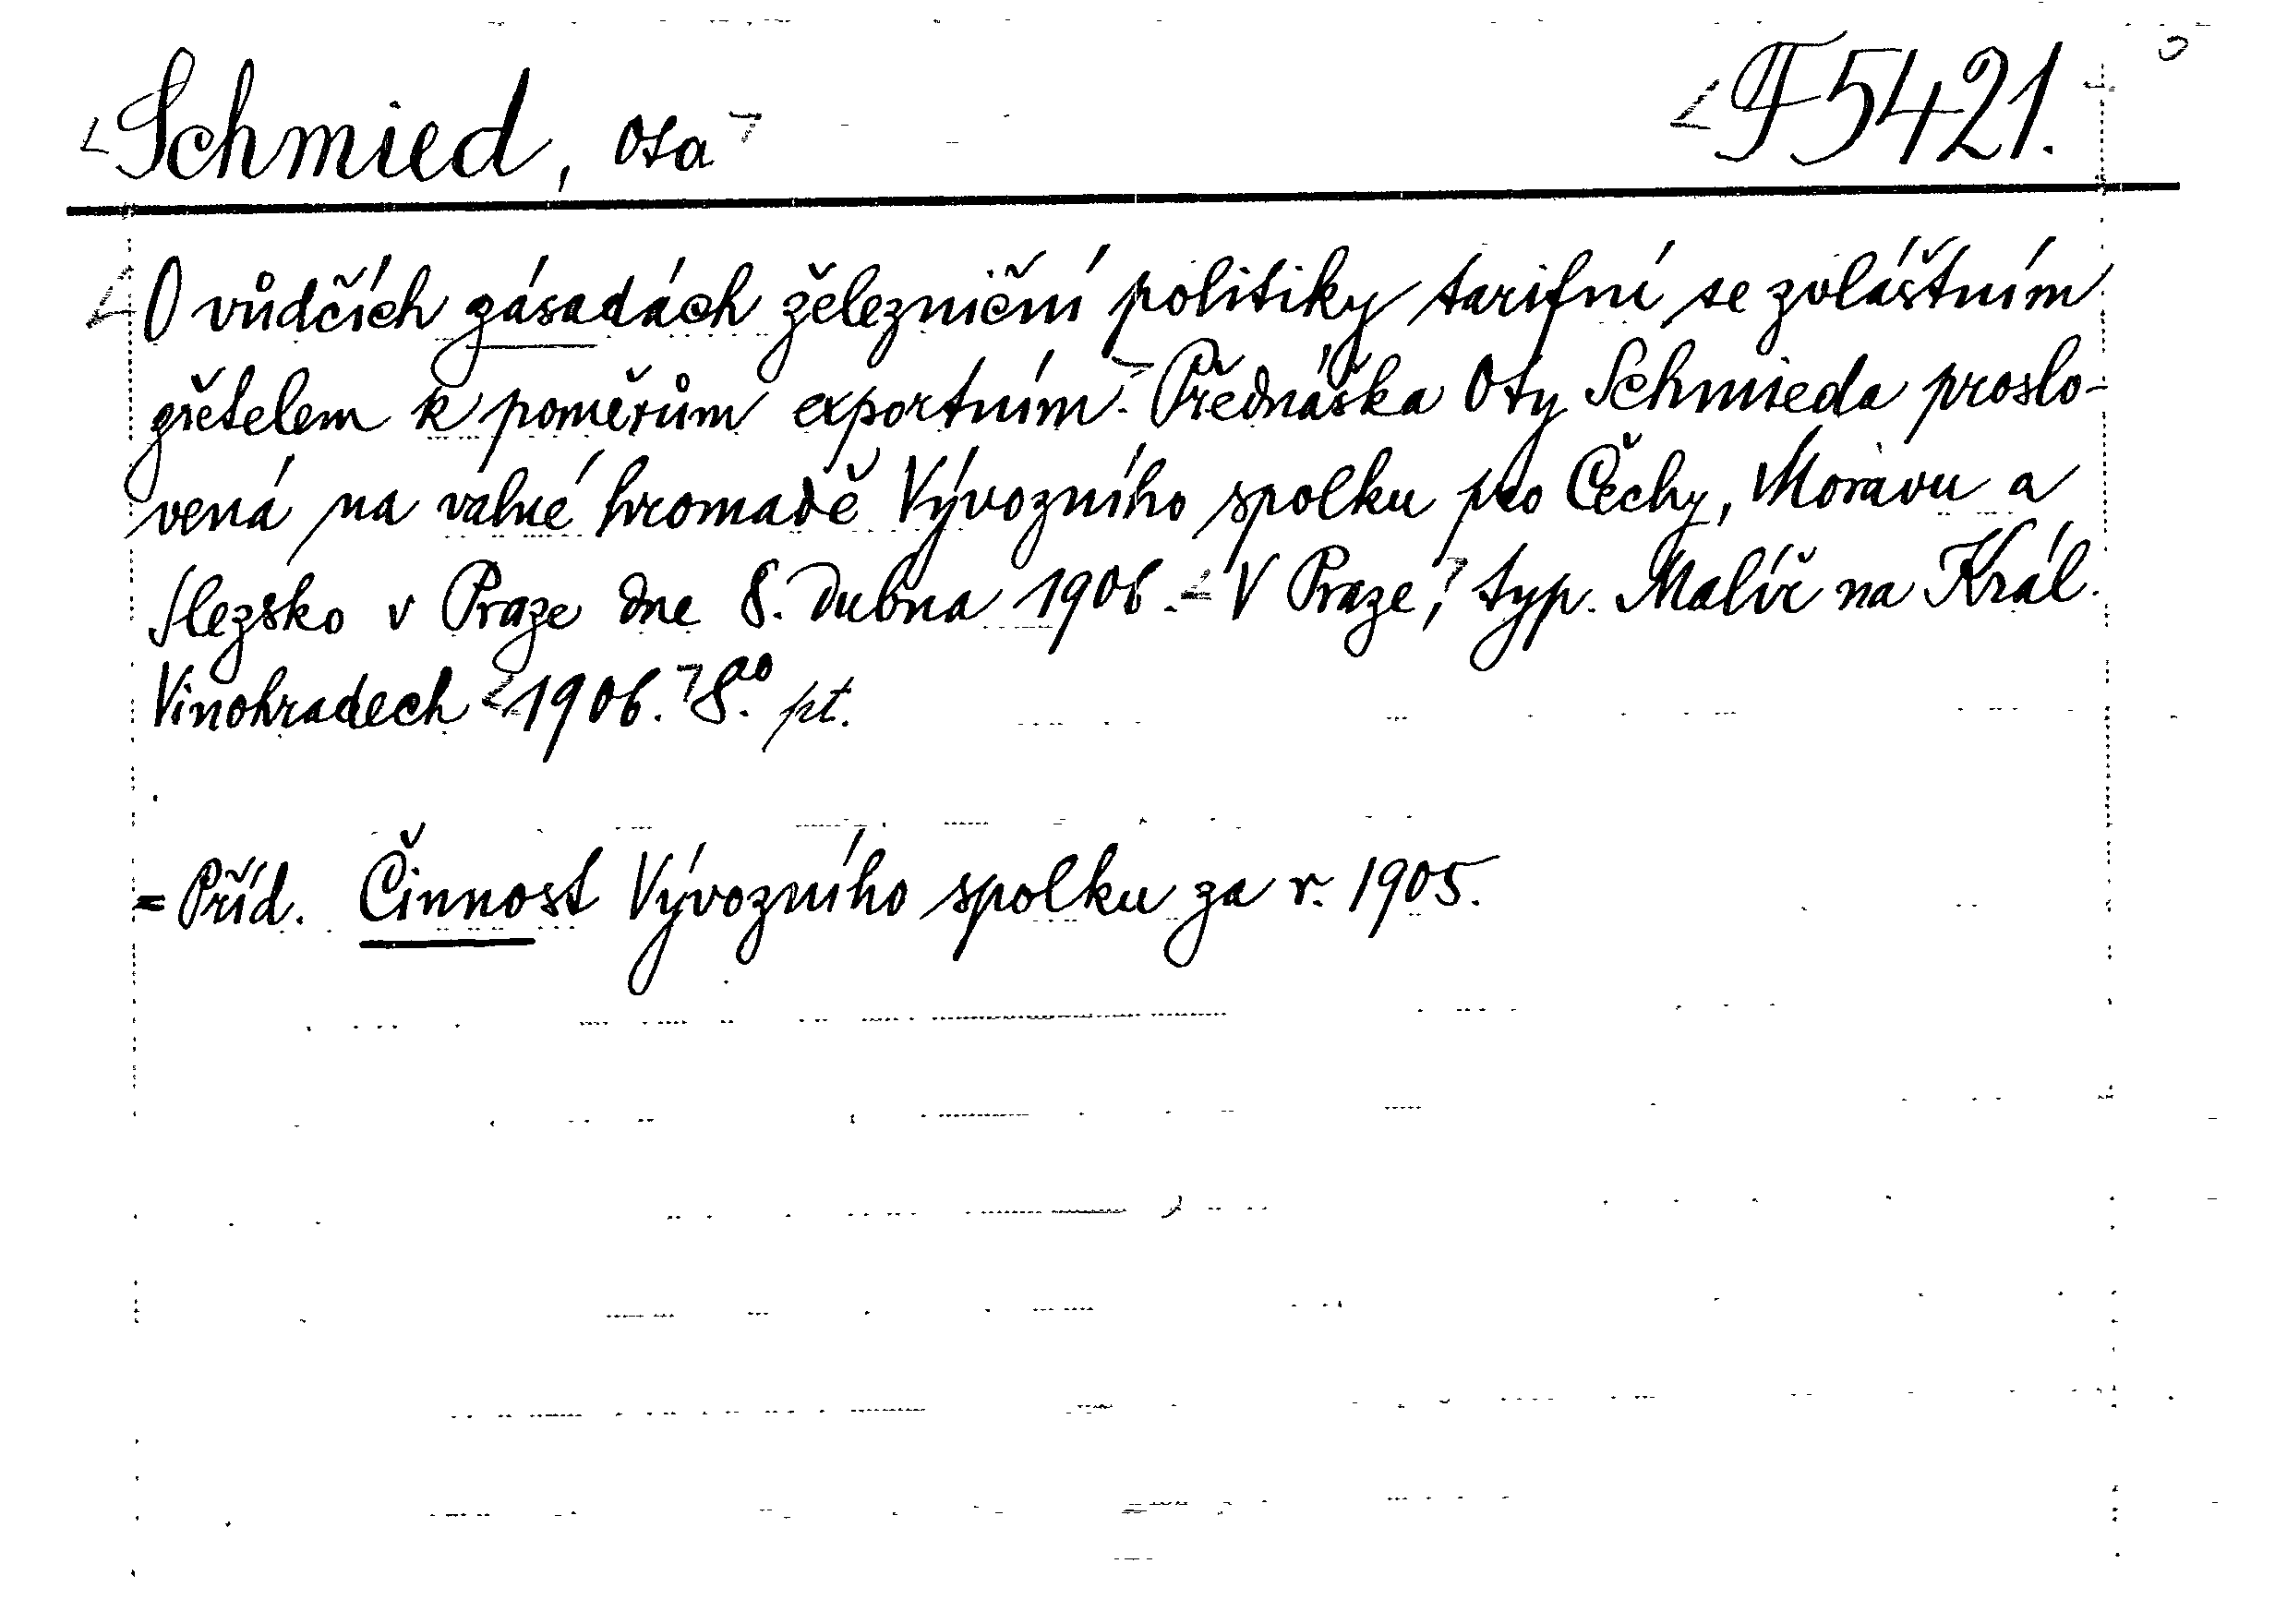 Schmied, Ota
F 5421.
O vůdčích zásadách železniční politiky tarifní se zvláštním
zřetelem k poměrům exportním. Přednáška Oty Schmieda proslo-
vená na valné hromadě Vývozního spolku pro Čechy, Moravu a
Slezsko v Praze dne 8. dubna 1906. - V Praze, typ. Malíř na Král.
Vinohradech 1906. 8º. pt.
= Příd. Činnost Vývozního spolku za r. 1905.